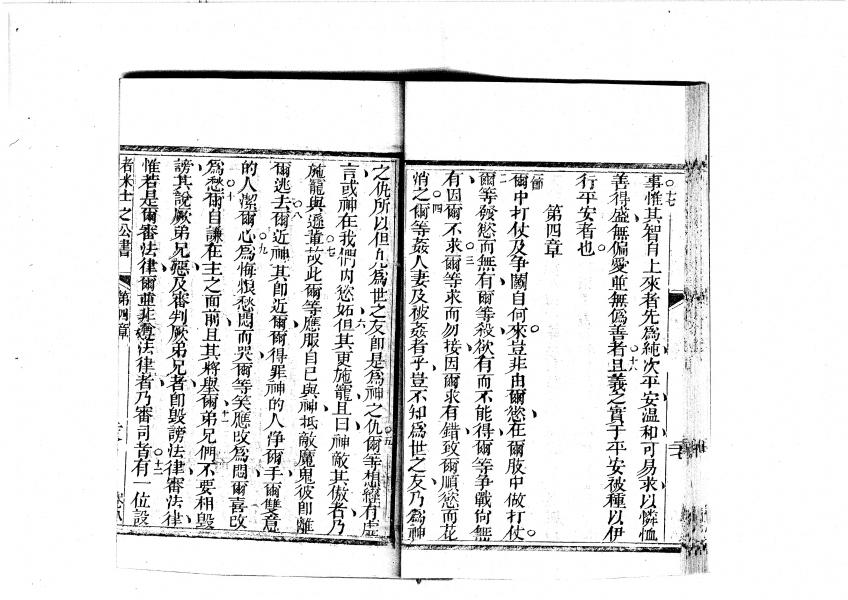 事惟其智自上來者先為純次平安温和可易求以憐恤
善得盛無偏愛並無偽善者且義之實于平安被種以伊
行平安者也
第四章
爾中打仗及争鬭自何來豈非由爾慾在爾肢中做打仗
爾等發慾而無有爾等殺欲有而不能得爾等争戰尙無
有因爾不求爾等求而勿接因爾求有錯致爾順慾而花
悄之爾等姦人妻及被姦者乎豈不知為世之友乃為神
之仇所以但凡為世之友卽是為神之仇爾等想經有虛
言或神在我們內慾妬但其更施寵且曰神敵其傲者乃
施寵與遜輩故此爾等應服自己與神抵敵魔鬼彼卽離
爾逃去爾近神其卽近爾爾得罪神的人淨爾手爾雙意
的人潔爾心為悔恨愁悶而哭爾等笑應改為悶爾喜改
為愁爾自謙在主之面前且其將舉爾弟兄們不要相毁
謗其說厥弟兄惡及審判厥弟兄者卽毁謗法律審法律
惟若是爾審法律爾並非遵法律者乃審司者有一位設
者米士之公書
第四章